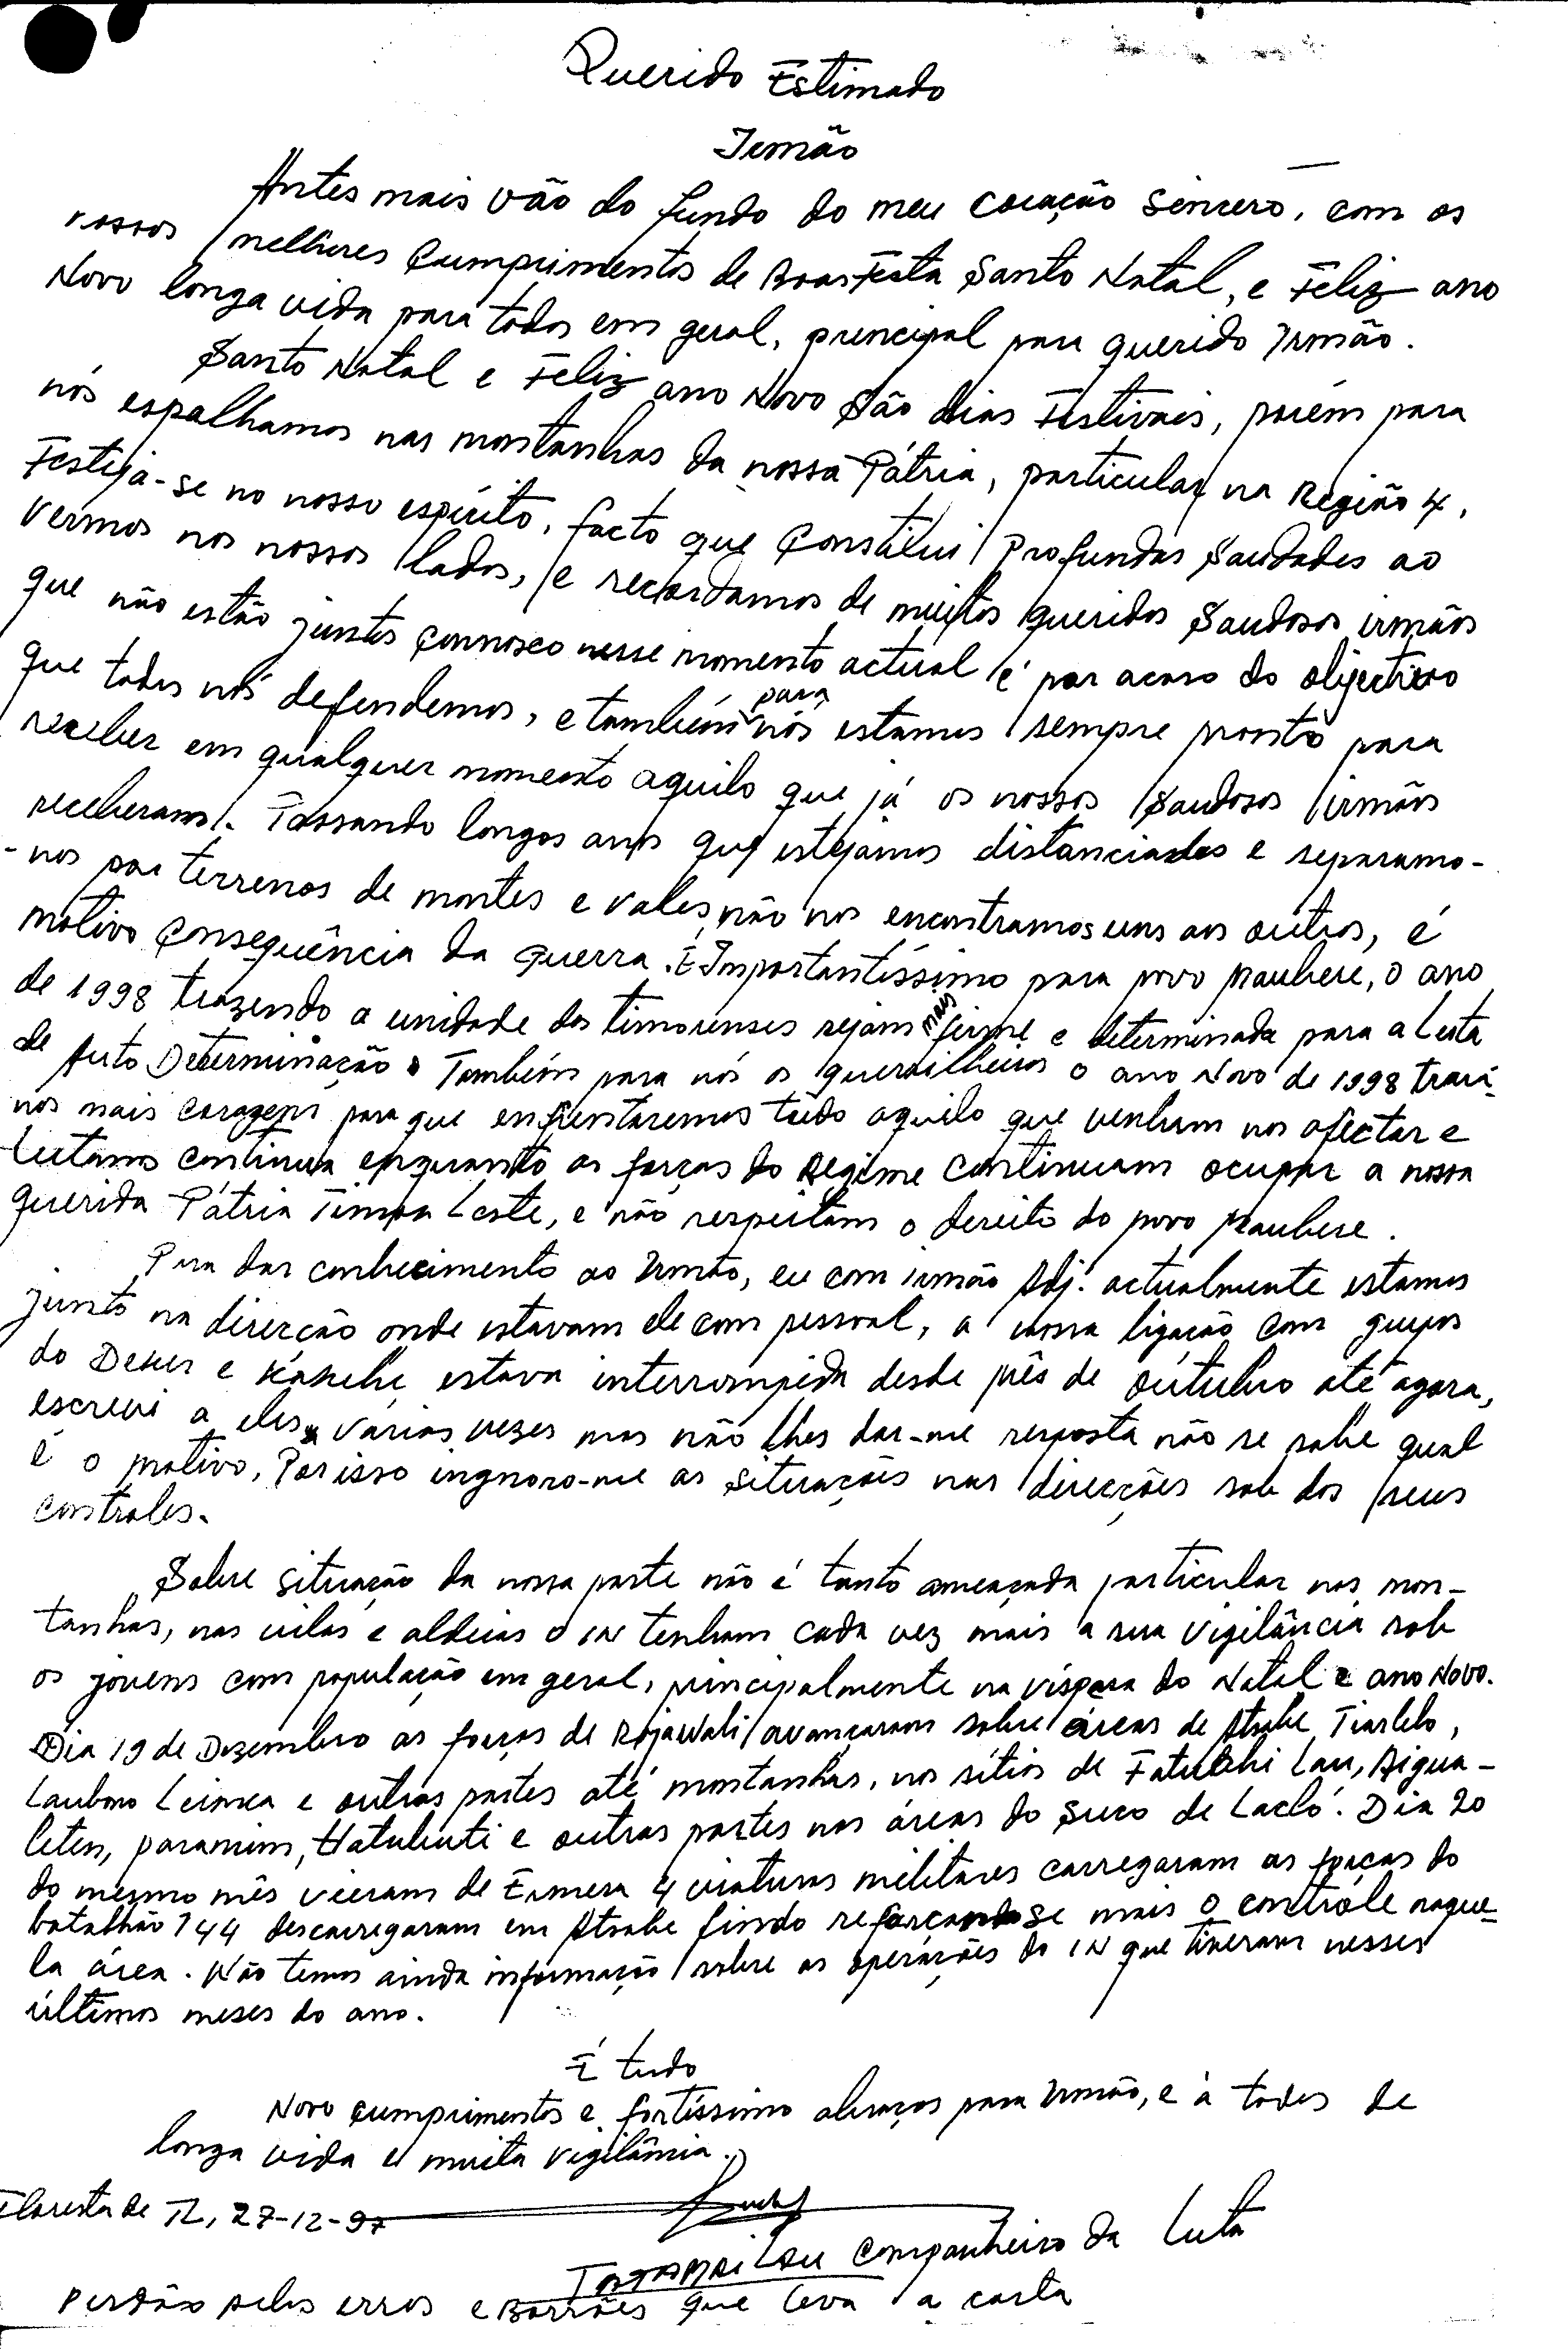 Querido Estimado
Irmão
Antes mais vão do fundo do meu coração sincero, com os
nossos melhores cumprimentos de Boas Festa Santo Natal, e Feliz ano
Novo longa vida para todos em geral, principal para querido Irmão.
Santo Natal e Feliz ano Novo são dias Festivais, porém para
nós espalhamos nas montanhas da nossa Pátria, particular na Região 4,
Festeja-se no nosso espírito, facto que constitui Profundas Saudades ao
vermos nos nossos lados, e recordamos de muitos queridos Saudosos irmãos
que não estão juntos connosco nesse momento actual é por acaso do objectivo
que todos nós defendemos, e também para nós estamos sempre pronto para
receber em qualquer momento aquilo que já os nossos Saudosos irmãos
receberam. Passando longos anos que estejamos distanciados e separamo-
-nos por terrenos de montes e vales, não nos encontramos uns aos outros, é
motivo consequência da guerra. É Importantíssimo para povo maubere, o ano
de 1998 trazendo a unidade dos timorenses sejam mais firme e determinada para a Luta
de Auto Determinação. Também para nós os guerrilheiros o ano Novo de 1998 trará-
nos mais coragem para que enfrentaremos tudo aquilo que venham nos afectar e
Lutamos continua enquanto as forças do Regime continuam ocupar a nossa
querida Pátria Timor Leste, e não respeitam o dereito do povo maubere.
Para dar conhecimento ao Irmão, eu com irmão Adj. actualmente estamos
junto na direcção onde estavam ele com pessoal, a nossa ligação com grupos
do Deker e Kakehe estava interrompida desde mês de outubro até agora,
escrevi a eles várias vezes mas não lhes dar-me resposta não se sabe qual
é o motivo, Por isso ingnoro-me as situações nas direcções sob dos seus
controles.
Sobre situação da nossa parte não é tanto ameaçada particular nas mon-
tanhas, nas vilas e aldeias o IN tenham cada vez mais a sua vigilância sob
os jovens com população em geral, principalmente na véspera do Natal e ano Novo.
Dia 19 de Dezembro as forças de Rajawali avançaram sobre áreas de Atsabe, Tiarlelo,
Laubono Leimea e outras partes até montanhas, nos sítios de Fatubhi Lau, Aigua-
leten, paramim, Hatubuti e outras partes nas áreas do Suco de Lacló. Dia 20
do mesmo mês vieram de Ermera 4 viaturas militares carregaram as forças do
batalhão 744 descarregaram em Atsabe findo reforçando-se mais o contróle naque-
la área. Não temos ainda informação sobre as operações do IN que tiveram nesses
últimos meses do ano.
É tudo
Novo cumprimentos e fortíssimo abraços para Irmão, e à todos de
longa vida e muita vigilância.
Floresta de TL, 27-12-97
Companheiro da Luta
Perdão pelos erros e Borrões que leva a carta